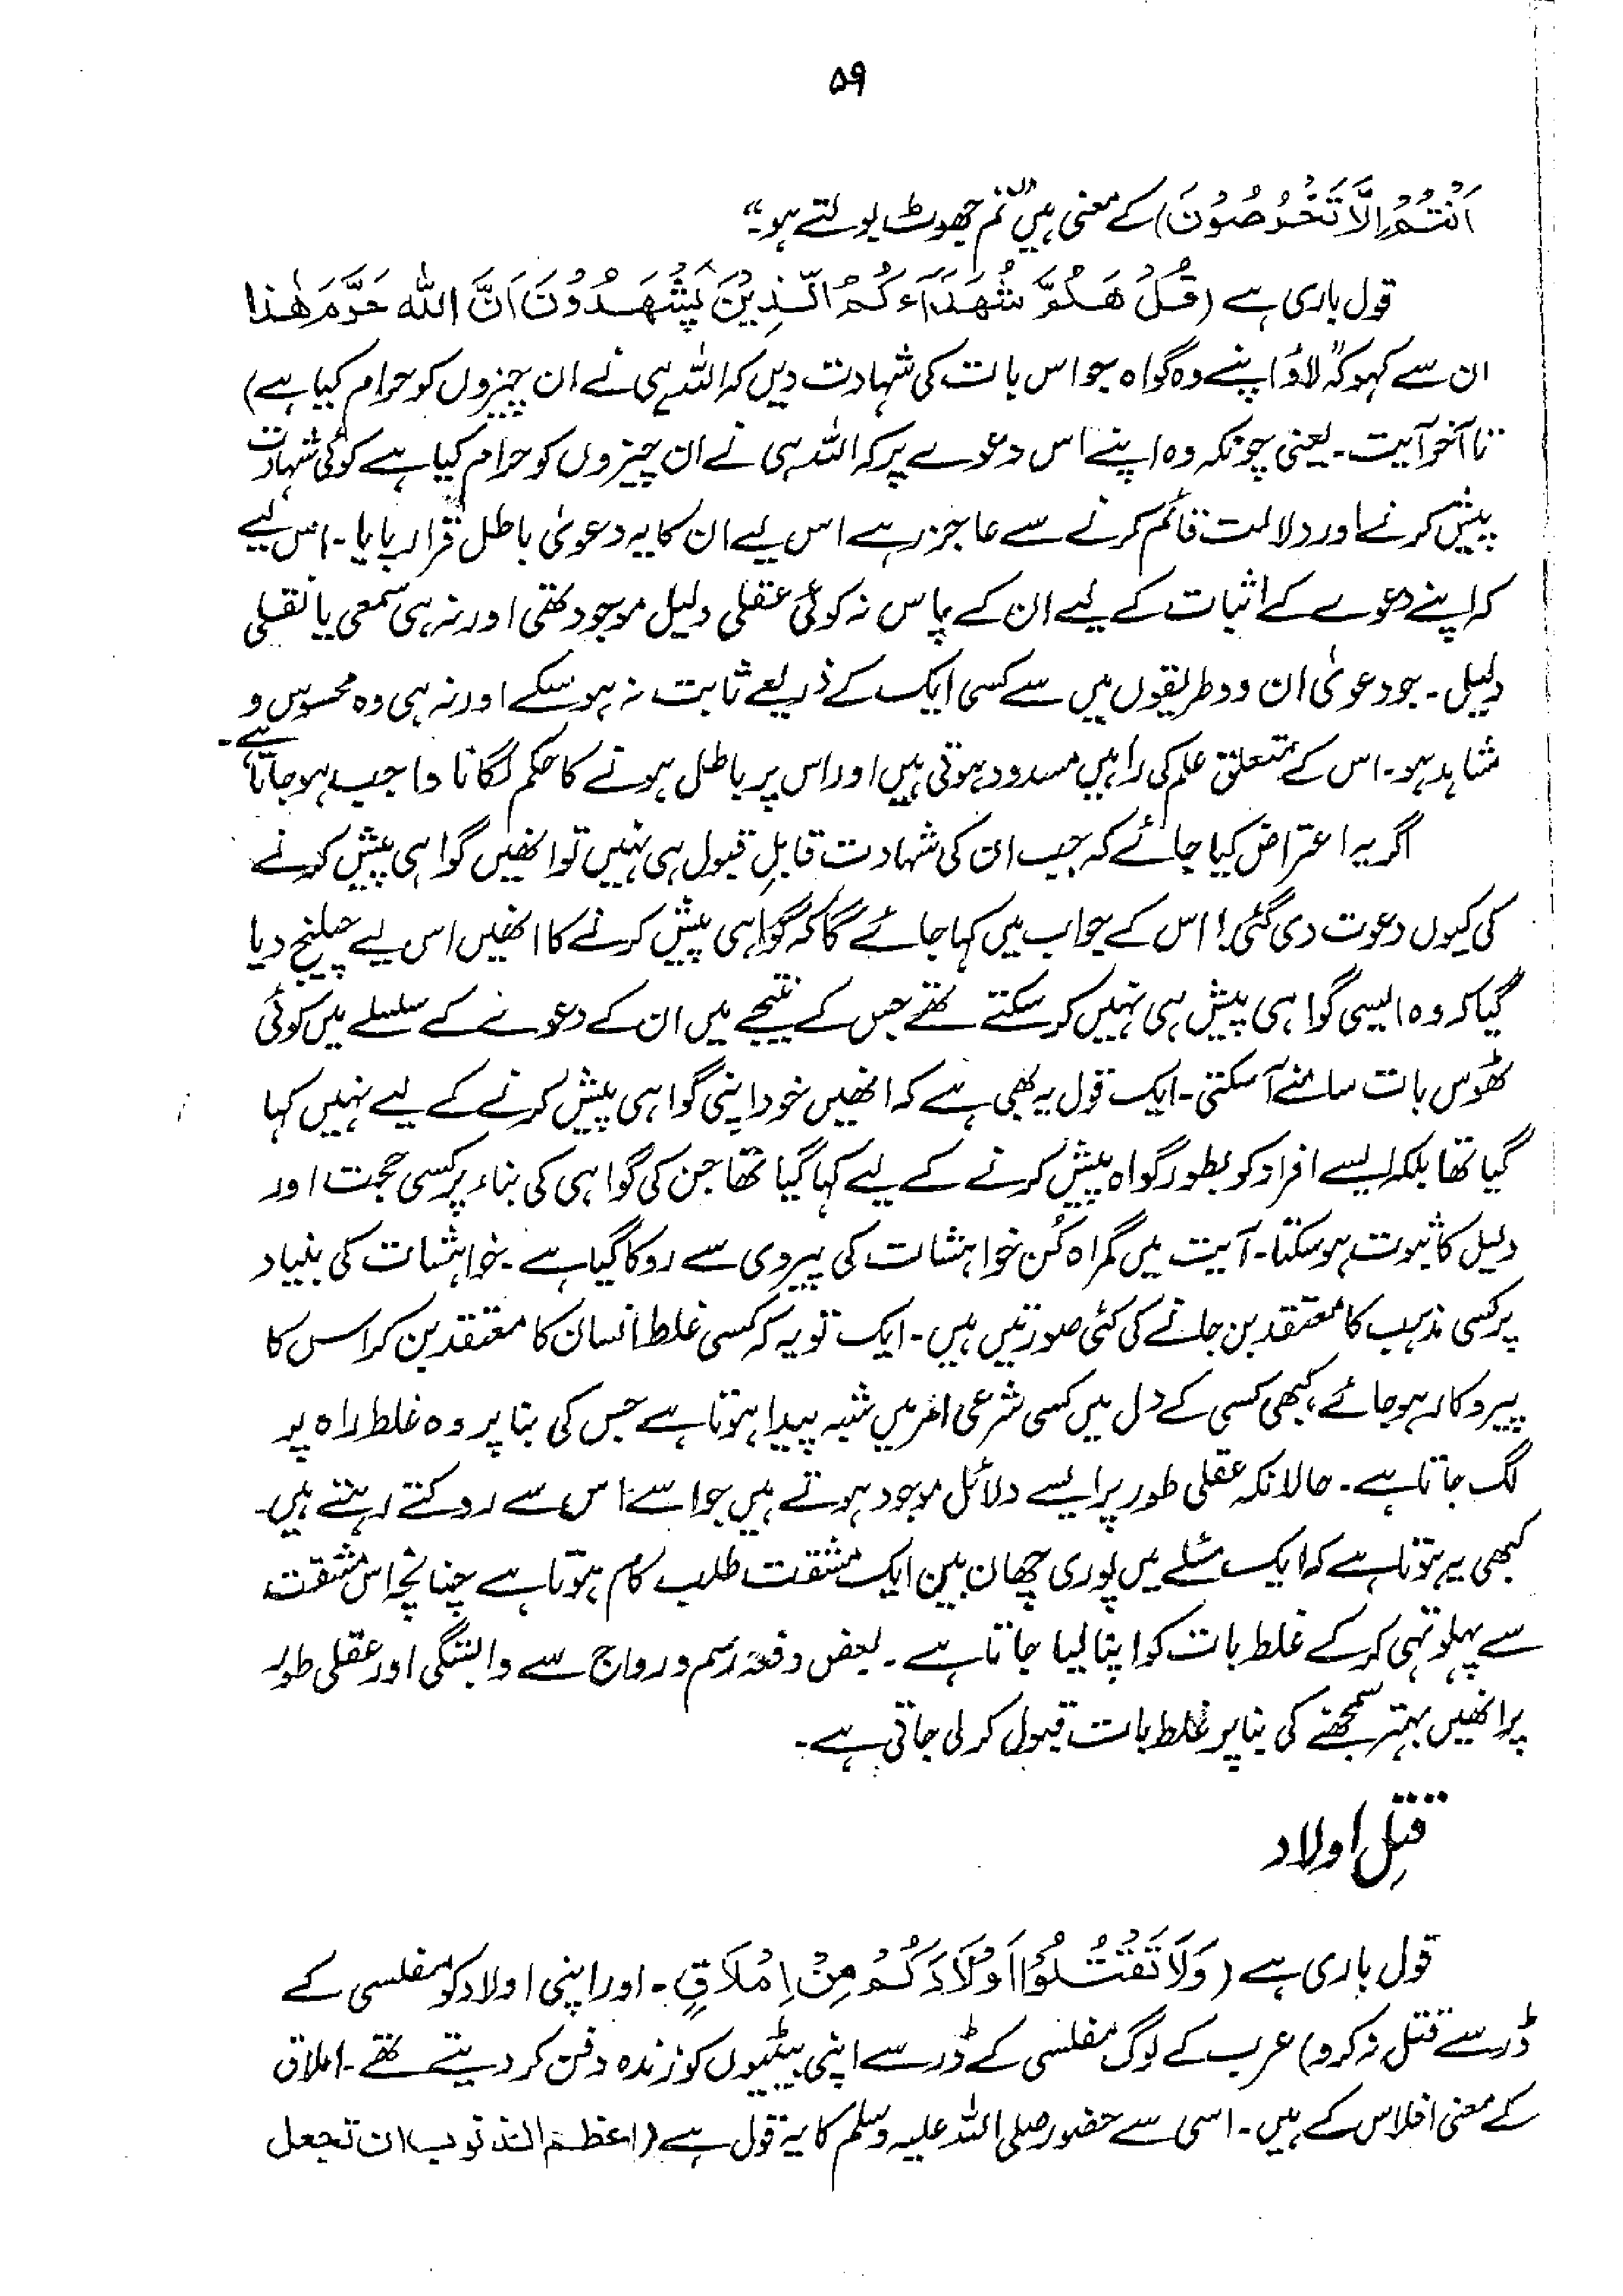 ۵۹
اَنْتُمْ اِلَّا تَخْرُصُوْنَ) کے معنی ہیں ”تم جھوٹ بولتے ہو۔“
قول باری ہے (قُلْ هَلُمَّ شُهَدَاءَكُمُ الَّذِيْنَ يَشْهَدُوْنَ اَنَّ اللّٰهَ حَرَّمَ هٰذَا
ان سے کہو کہ ”لاؤ اپنے وہ گواہ جو اس بات کی شہادت دیں کہ اللہ ہی نے ان چیزوں کو حرام کیا ہے)
تا آخر آیت۔ یعنی چونکہ وہ اپنے اس دعوے پر کہ اللہ ہی نے ان چیزوں کو حرام کیا ہے کوئی شہادت
پیش کرنے اور دلالت قائم کرنے سے عاجز رہے اس لیے ان کا یہ دعویٰ باطل قرار پایا۔ اس لیے
کہ اپنے دعوے کے اثبات کے لیے ان کے پاس نہ کوئی عقلی دلیل موجود تھی اور نہ ہی سمعی یا نقلی
دلیل۔ جو دعویٰ ان دو طریقوں میں سے کسی ایک کے ذریعے ثابت نہ ہو سکے اور نہ ہی وہ محسوس و
شاہد ہو۔ اس کے متعلق علم کی راہیں مسدود ہوتی ہیں اور اس پر باطل ہونے کا حکم لگانا واجب ہو جاتا ہے۔
اگر یہ اعتراض کیا جائے کہ جب ان کی شہادت قابلِ قبول ہی نہیں تو انھیں گواہی پیش کرنے
کی کیوں دعوت دی گئی! اس کے جواب میں کہا جائے گا کہ گواہی پیش کرنے کا انھیں اس لیے چیلنج دیا
گیا کہ وہ ایسی گواہی پیش ہی نہیں کر سکتے تھے جس کے نتیجے میں ان کے دعوے کے سلسلے میں کوئی
ٹھوس بات سامنے آ سکتی۔ ایک قول یہ بھی ہے کہ انھیں خود اپنی گواہی پیش کرنے کے لیے نہیں کہا
گیا تھا بلکہ ایسے افراد کو بطور گواہ پیش کرنے کے لیے کہا گیا تھا جن کی گواہی کی بناء پر کسی حجت اور
دلیل کا ثبوت ہو سکتا۔ آیت میں گمراہ کُن خواہشات کی پیروی سے روکا گیا ہے۔ خواہشات کی بنیاد
پر کسی مذہب کا معتقد بن جانے کی کئی صورتیں ہیں۔ ایک تو یہ کہ کسی غلط انسان کا معتقد بن کر اس کا
پیروکار ہو جائے، کبھی کسی کے دل میں کسی شرعی امر میں شبہ پیدا ہوتا ہے جس کی بنا پر وہ غلط راہ پر
لگ جاتا ہے۔ حالانکہ عقلی طور پر ایسے دلائل موجود ہوتے ہیں جو اسے اس سے روکتے رہتے ہیں۔
کبھی یہ ہوتا ہے کہ ایک مسئلے میں پوری چھان بین ایک مشقت طلب کام ہوتا ہے چنانچہ اس مشقت
سے پہلو تہی کر کے غلط بات کو اپنا لیا جاتا ہے۔ بعض دفعہ رسم و رواج سے وابستگی اور عقلی طور
پر انھیں بہتر سمجھنے کی بنا پر غلط بات قبول کر لی جاتی ہے۔
قتلِ اولاد
قول باری ہے (وَلَا تَقْتُلُوْا اَوْلَادَكُمْ مِنْ اِمْلَاقٍ۔ اور اپنی اولاد کو مفلسی کے
ڈر سے قتل نہ کرو) عرب کے لوگ مفلسی کے ڈر سے اپنی بیٹیوں کو زندہ دفن کر دیتے تھے۔ املاق
کے معنی افلاس کے ہیں۔ اسی سے حضور صلی اللہ علیہ وسلم کا یہ قول ہے (اعظم الذنوب ان تجعل